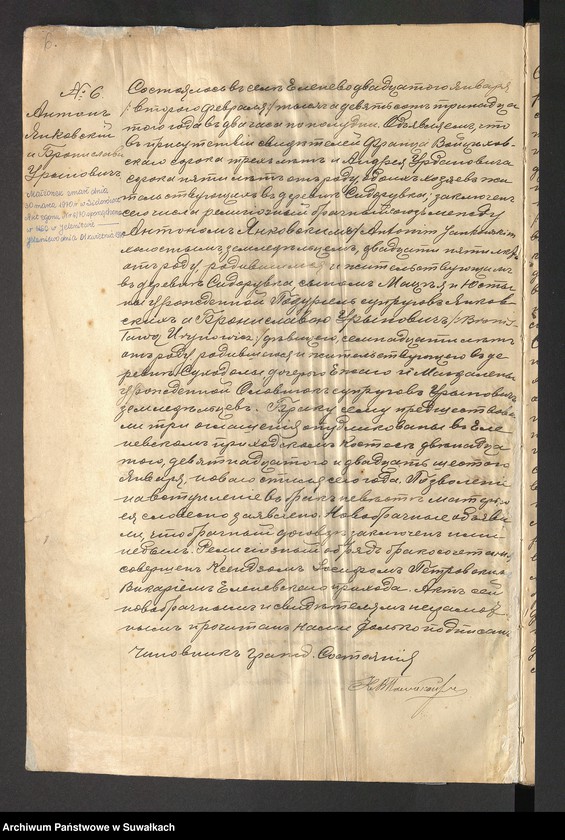 6.
№ 6
Антонъ
Янковскій
и Бронислава
Урыновичъ
Małżonek zmarł dnia
Состоялось въ селѣ Еленево двадцатого Января
/второго Февраля/ тысяча девятьсотъ тринадца
того года въ два часа по полудни. Объявляемъ, что
въ присутствіи свидѣтелей Франца Войцѣхов-
скаго сорока трехъ лѣтъ и Андрея Урбановича
сорока пяти лѣтъ отъ роду, обоихъ хозяевъ жи
тельствующихъ въ деревнѣ Сидорувка; заключенъ
сего числа религіозный брачный союзъ между
Антономъ Янковскимъ /Antonim Jankowskim/
холостымъ земледѣльцемъ, двадцати пяти лѣтъ
отъ роду, родившимся и жительствующимъ
въ деревнѣ Сидорувка, сыномъ Мацѣя и Юсты
ны урожденной супруговъ Янков
скихъ и Брониславою Урыновичъ /Broni-
ławą Urynowicz/ дѣвицею, семнадцати лѣтъ
отъ роду, родившеюся и жительствующею въ де
ревнѣ дочерью и Магдалены
урожденной супруговъ Урыновичъ
земледѣльцевъ. Браку сему предшествова
ли три оглашенія опубликованы въ Еле
невскомъ приходскомъ Костелѣ двѣнадца
того, девятнадцатого и двадцать шестого
Января, новаго стиля сего года. Позволеніе
на вступленіе въ бракъ невѣстѣ матерью
ея словесно заявлено. Новобрачные объяви
ли, что брачный договоръ заключенъ ими
не былъ. Религіозный обрядъ бракосочетанія
совершенъ Ксендзомъ Іосифомъ Петровскимъ
Викаріемъ Еленевскаго прихода. Актъ сей
новобрачнымъ и свидѣтелямъ неграмот-
нымъ прочитанъ Нами только подписанъ.
Чиновникъ Гражд. Состоянія
Archiwum Państwowe w Suwałkach